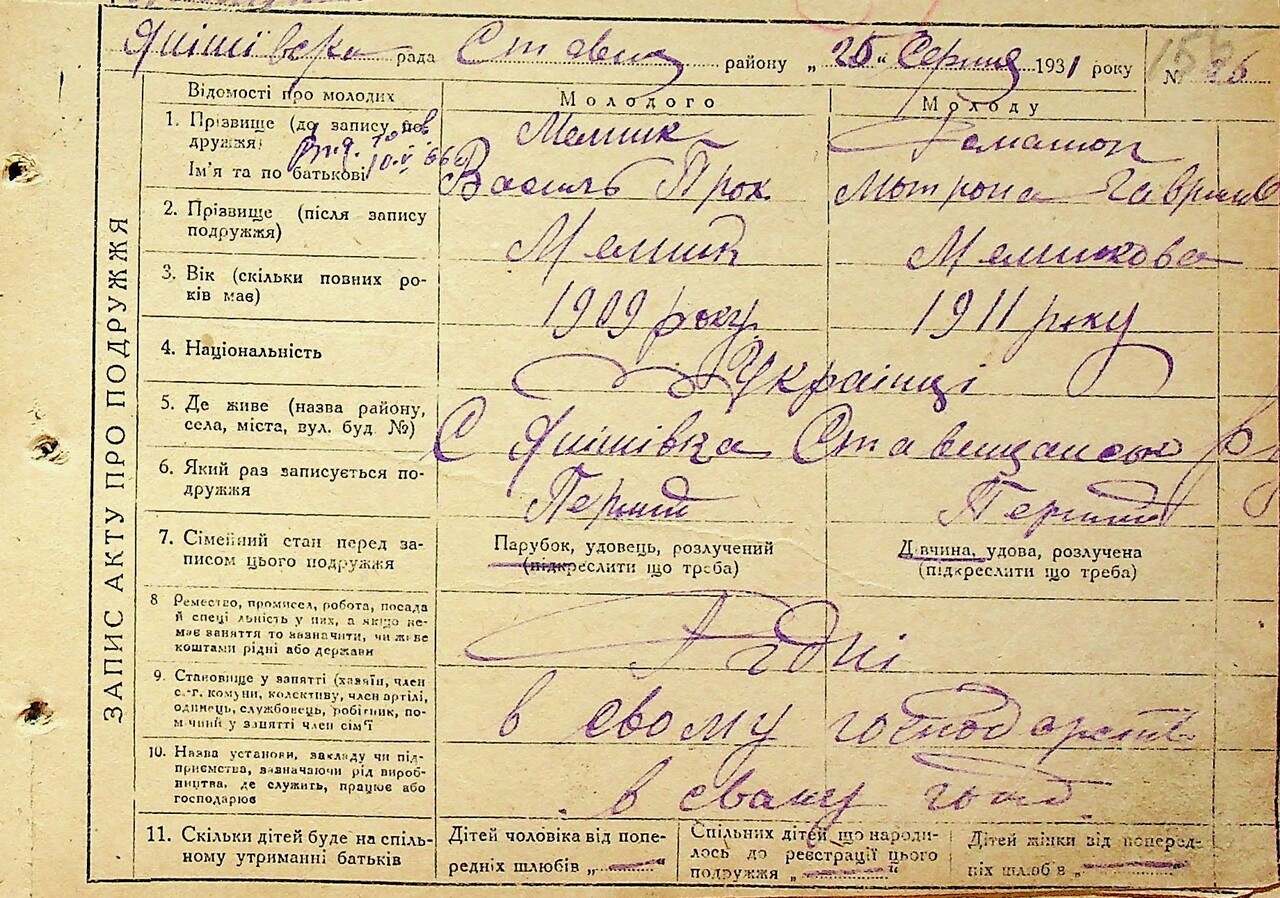 Янішівська рада Ставищ. району „ 25 “ Серпня 1931 року № 26
156
Відомості про молодих
Молодого
Молоду
1. Прізвище (до запису подружжя)
Ім'я та по батькові
Мельник
Василь Прок.
Мотрона Гаврилів
2. Прізвище (після запису
подружжя)
Мельник
Мельникова
3. Вік (скільки повних ро-
ків має)
1909 року
1911 року
4. Національність
Українці
5. Де живе (назва району,
села, міста, вул. буд. №)
С Янішівка Ставищанськ р
6. Який раз записується по-
дружжя
Перший
Перший
7. Сімейний стан перед за-
писом цього подружжя
Парубок, удовець, розлучений
(підкреслити що треба)
Дівчина, удова, розлучена
(підкреслити що треба)
8 Ремество, промисел, робота, посада
й спеціальність у них, а якщо не-
має заняття то зазначити, чи живе
коштами рідні або держави
9. Становище у занятті (хазяїн, член
с.-г. комуни, колективу, член артілі,
одинець, службовець, робітник, по-
мічний у занятті член сім'ї
в свому господарств
10. Назва установи, закладу чи під-
приємства, зазначаючи рід вироб-
ництва, де служить, працює або
господарює
в свому госп
11. Скільки дітей буде на спіль-
ному утриманні батьків
Дітей чоловіка від попе-
редніх шлюбів „ “
Спільних дітей що народи-
лось до реєстрації цього
подружжя „ “
Дітей жінки від поперед-
ніх шлюбів „
ЗАПИС АКТУ ПРО ПОДРУЖЖЯ